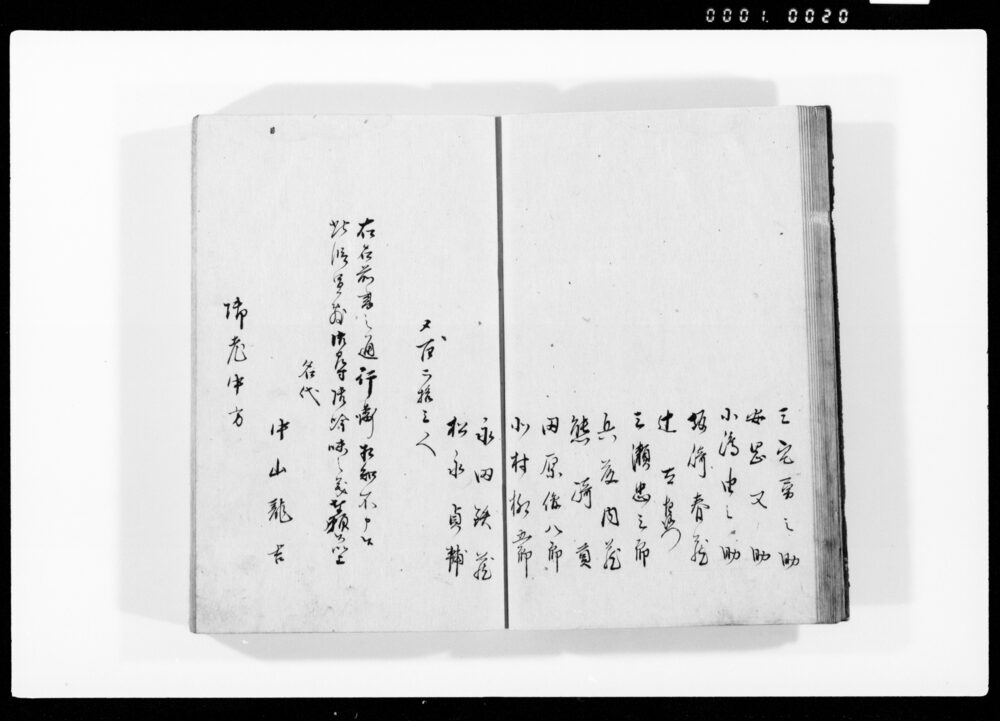 0001. 0020
三宅勇之助
安芸又助
小嶋忠之助
坂崎春蔵
辻
三瀬忠三郎
兵藤内蔵
熊崎
田原伝八郎
小村柳五郎
永田鉄蔵
松永貞輔
〆百二拾三人
右名前書之通行衛相知不申候
此段宜敷御尋御吟味之義奉頼候以上
名代
中山龍吉
御老中方